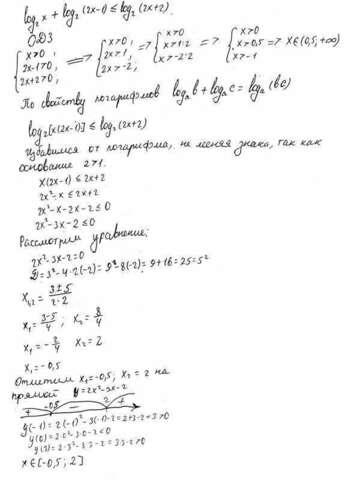 log₂x + log₂(2x-1) ≤ log₂(2x+2).
ОДЗ
{x>0, 2x-1>0, 2x+2>0, => {x>0, 2x>1, 2x>-2, => {x>0 x>1:2 x>-2:2 => {x>0 x>0,5 x>-1 => x∈(0,5; +∞)
По свойству логарифмов logₐb + logₐc = logₐ(bc)
log₂[x(2x-1)] ≤ log₂(2x+2)
избавимся от логарифма, не меняя знака, так как
основание 2>1.
x(2x-1) ≤ 2x+2
2x²-x ≤ 2x+2
2x²-x-2x-2 ≤ 0
2x²-3x-2 ≤ 0
Рассмотрим уравнение:
2x²-3x-2=0
D=3²-4·2(-2)=9-8(-2)=9+16=25=5²
x₁,₂ = (3±5)/(2·2)
x₁ = (3-5)/4; x₂ = 8/4
x₁ = -2/4 x₂ = 2
x₁ = -0,5
Отметим x₁=-0,5; x₂=2 на
прямой y=2x²-3x-2
+ -0,5 - 2 +
y(-1)=2(-1)²-3(-1)-2=2+3-2=3>0
y(0)=2·0²-3·0-2<0
y(3)=2·3²-3·3-2>0
x∈[-0,5; 2]